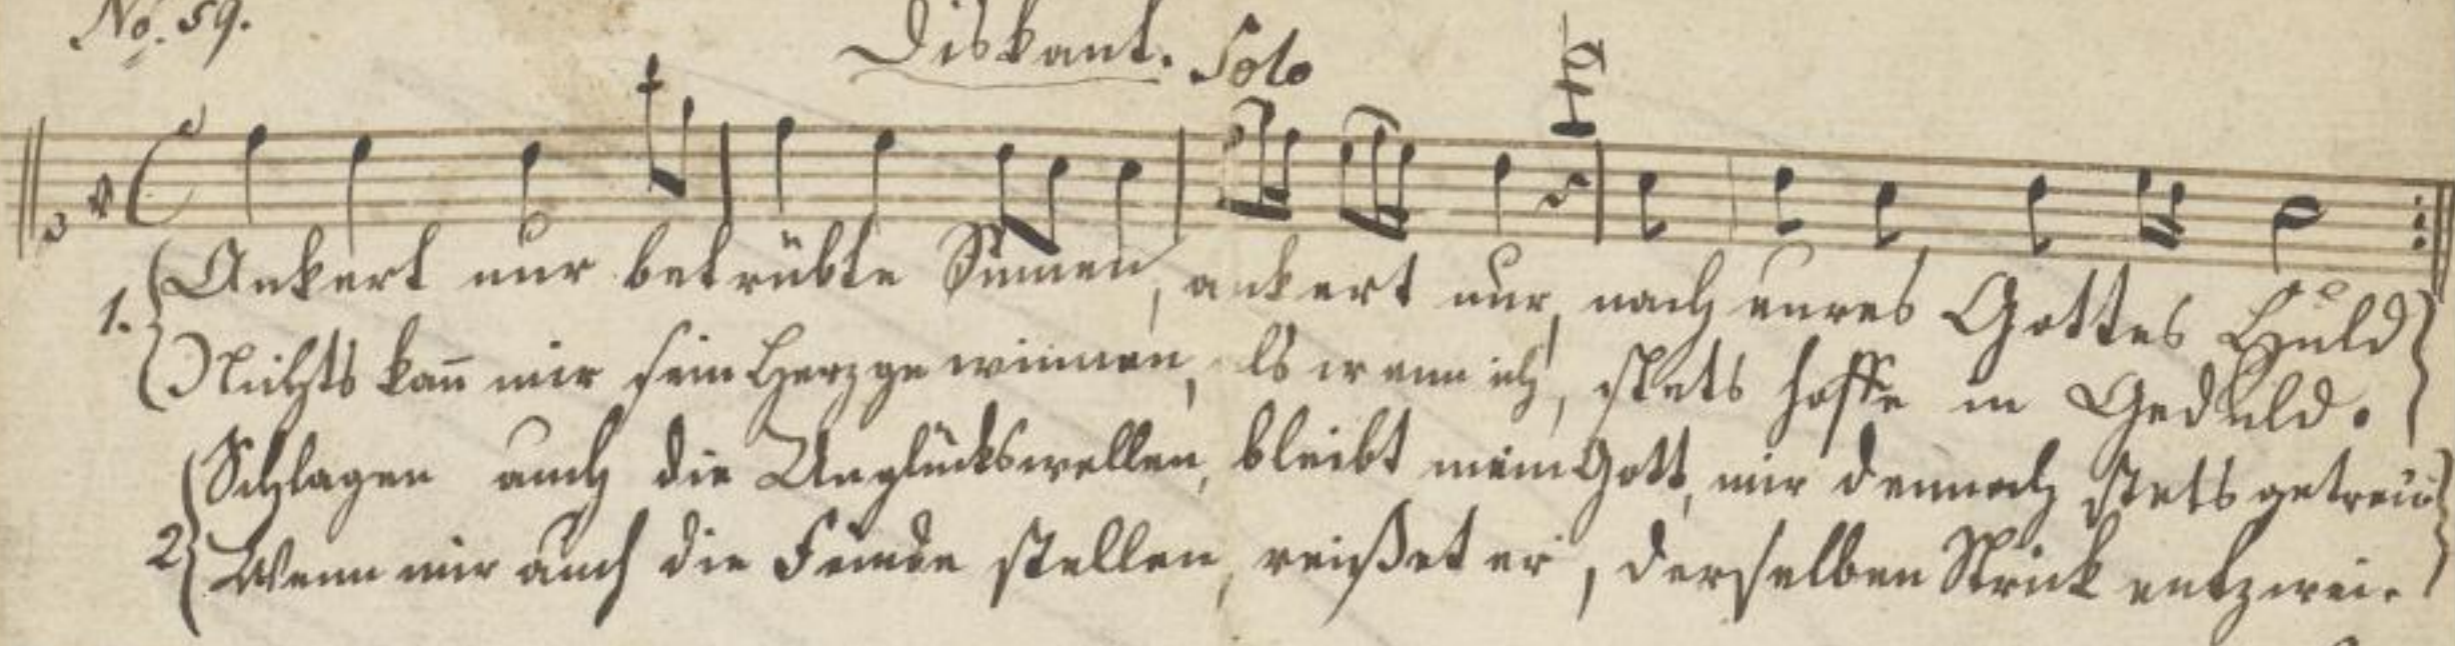 No. 59.
Diskant. Solo
1. Ankert nur betrübte Sinnen, ankert nur, nach eures Gottes Huld
Nichts kann mir sein Herz gewinnen, als wenn ich, stets hoffe in Geduld.
2. Schlagen auch die Unglückswellen, bleibt mein Gott, mir dennoch stets getreu
Wenn mir auch die Feinde stellen, reißet er, derselben Strick entzwei.